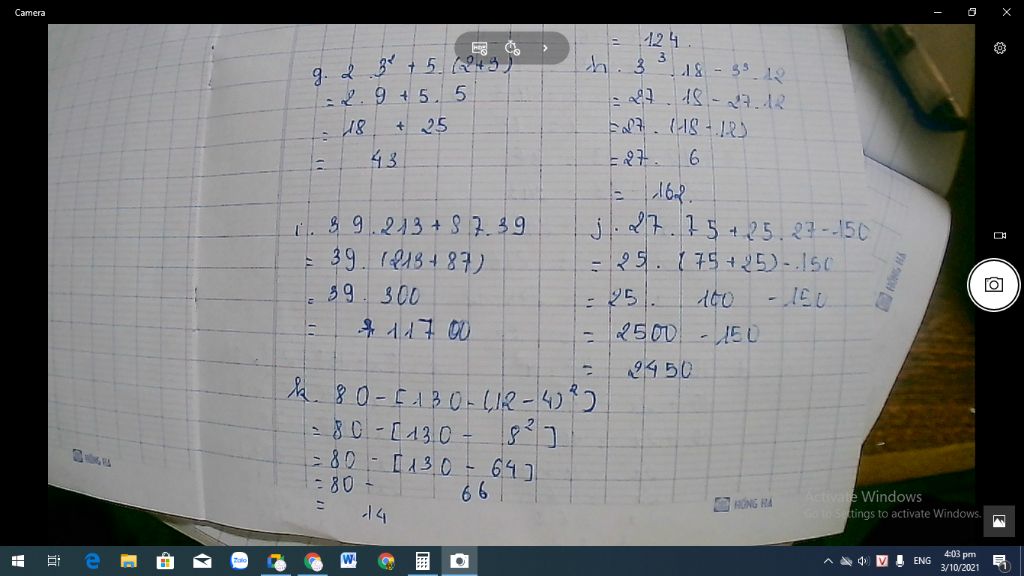 Camera
= 124.
g. 2 . 3² + 5. (2+3)
= 2. 9 + 5. 5
= 18 + 25
= 43
h. 3³.18 - 3³.12
= 27 . 18 - 27.12
= 27 . (18 - 12)
= 27. 6
= 162.
i. 39.213 + 87.39
= 39. (213 + 87)
= 39. 300
= 11700
j. 27. 75 + 25. 27 - 150
= 25. (75 + 25) - 150
= 25. 100 - 150
= 2500 - 150
= 2450
k. 80 - [130 - (12 - 4)²]
= 80 - [130 - 8²]
= 80 - [130 - 64]
= 80 - 66
= 14
HỒNG HÀ
HỒNG HÀ
HỒNG HÀ
Activate Windows
Go to Settings to activate Windows.
Zalo
ENG
4:03 pm
3/10/2021